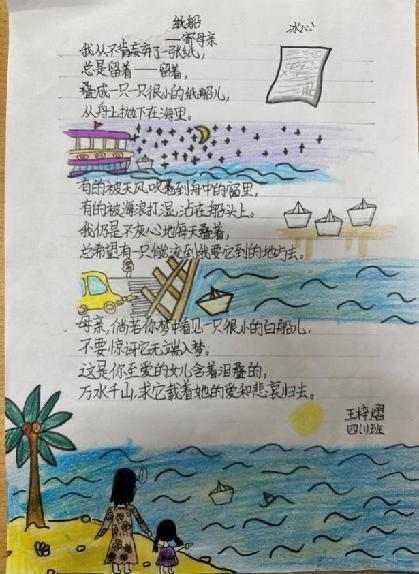 纸船
——寄母亲
冰心
我从不肯妄弃了一张纸,
总是留着——留着,
叠成一只一只很小的纸船儿,
从舟上抛下在海里。
有的被天风吹卷到舟中的窗里,
有的被海浪打湿,沾在船头上。
我仍是不灰心地每天叠着,
总希望有一只能流到我要它到的地方去。
母亲,倘若你梦中看见一只很小的白船儿,
不要惊讶它无端入梦。
这是你至爱的女儿含着泪叠的,
万水千山,求它载着她的爱和悲哀归去。
王梓熠
四(1)班